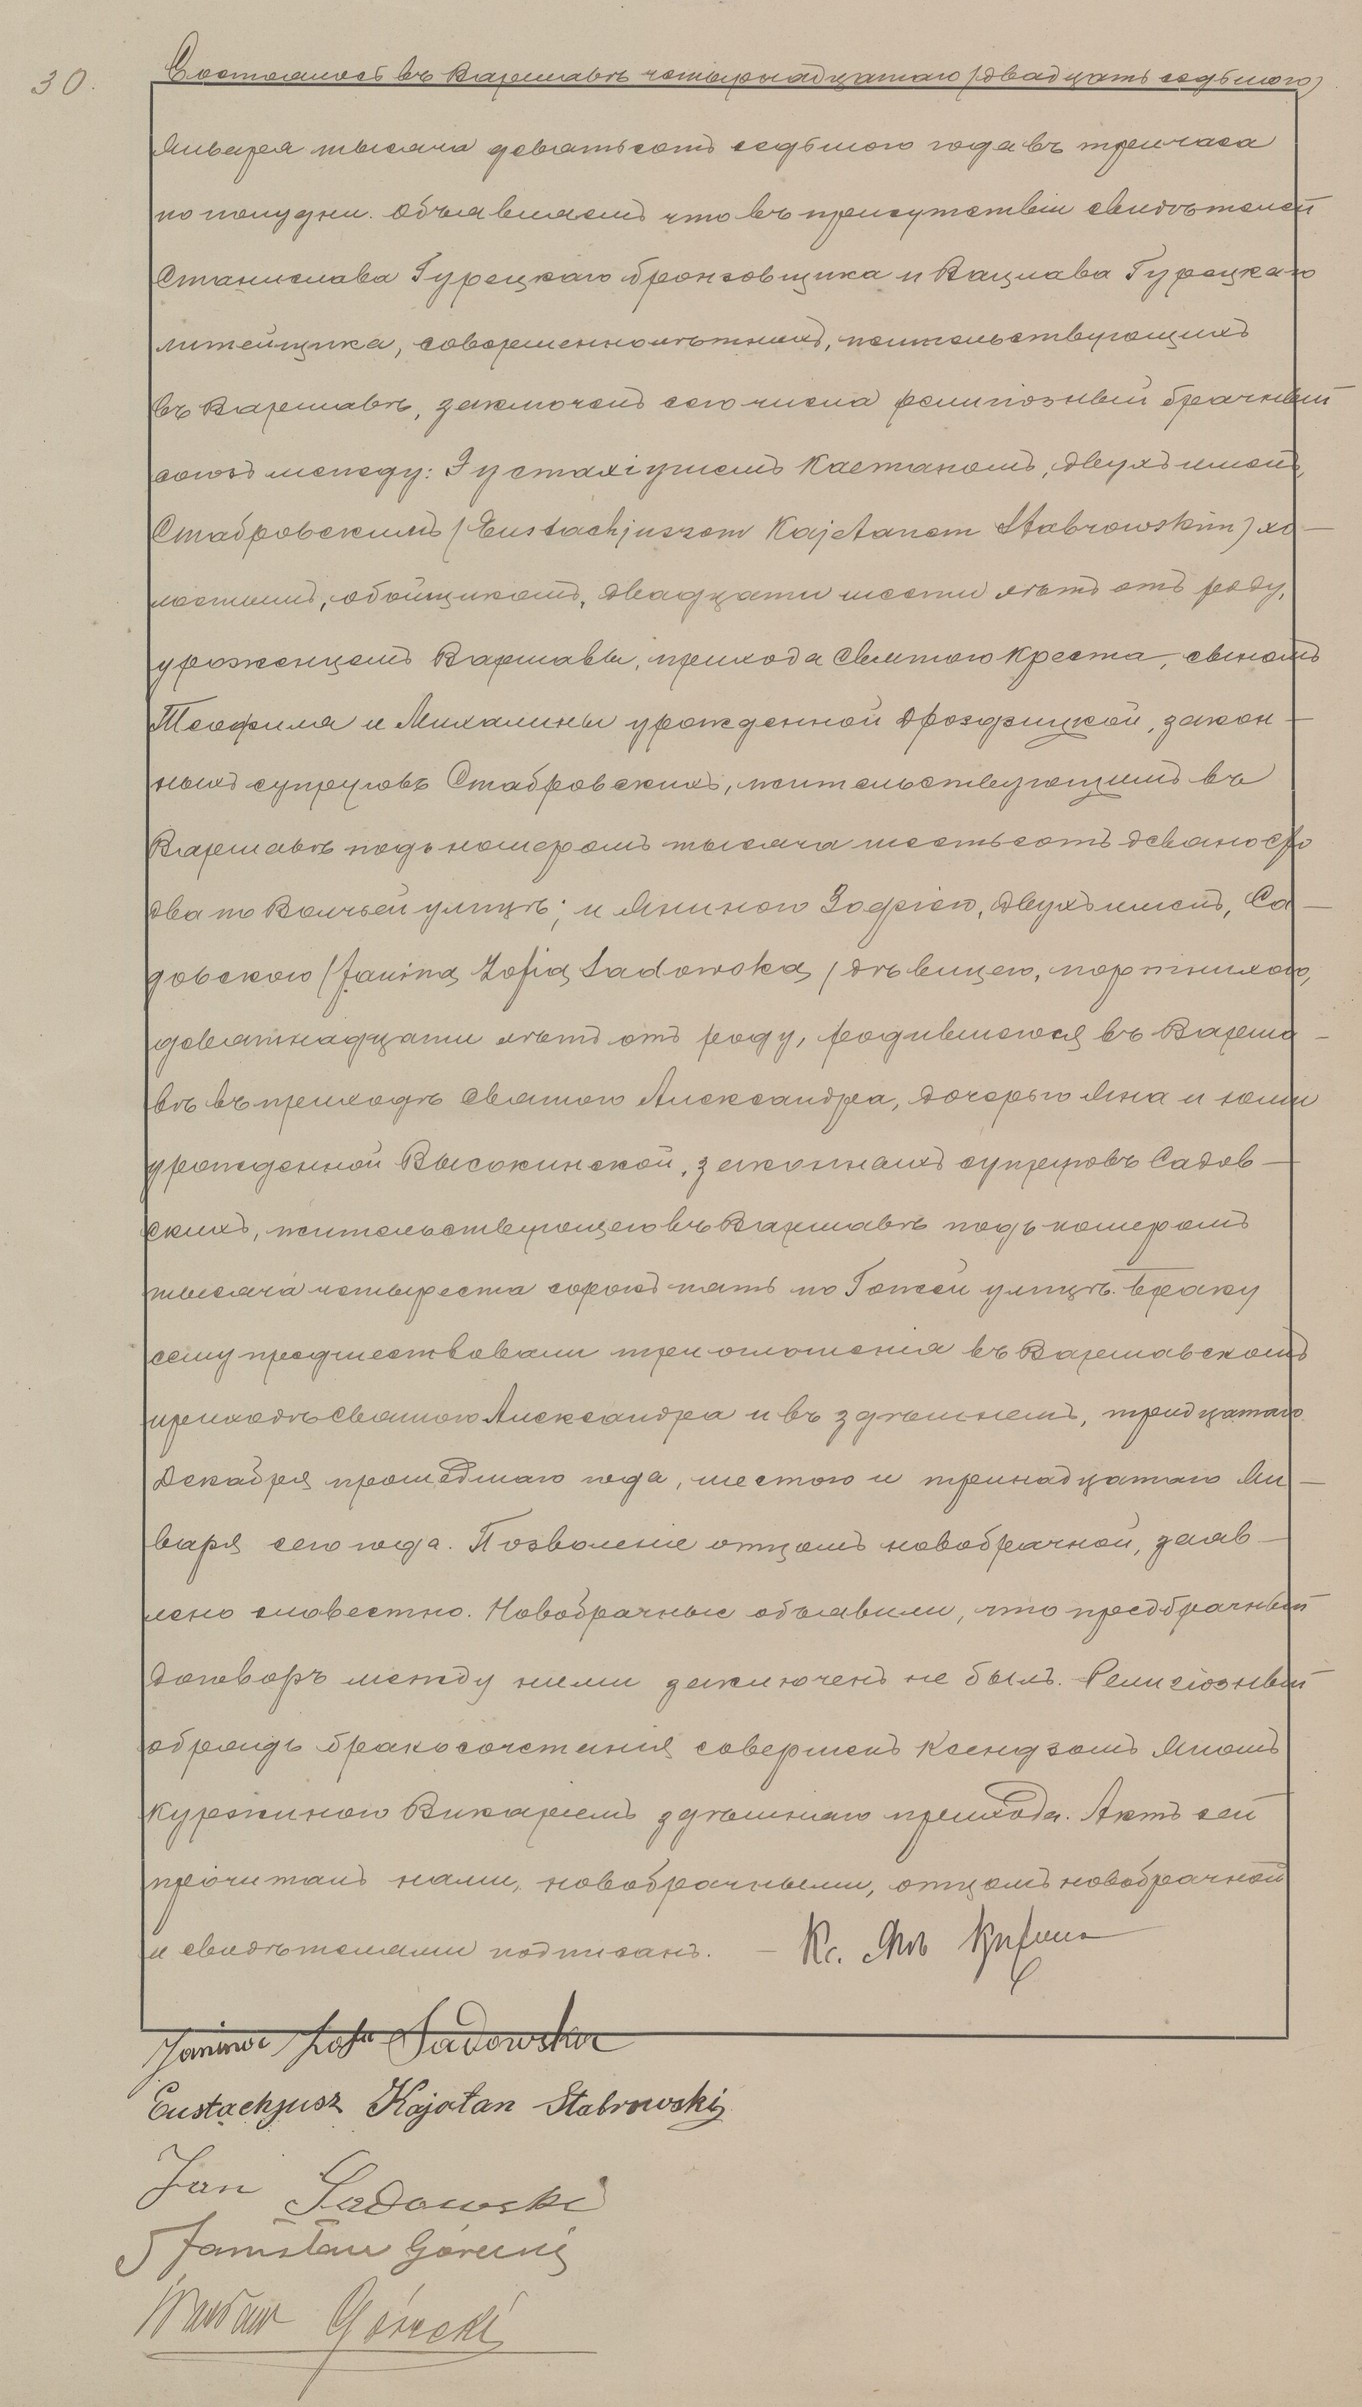 30.
Состоялось въ Варшавѣ четырнадцатаго (двадцать седьмого)
Января тысяча девятьсотъ седьмого года въ три часа
по полудни. Объявляемъ что въ присутствіи свидѣтелей
Станислава Гурецкаго бронзовщика и Вацлава Гурецкаго
литейщика, совершеннолѣтнихъ, жительствующихъ
въ Варшавѣ, заключенъ сего числа религіозный брачный
союзъ между: Эустахіушемъ Каетаномъ, двухъ именъ,
Стабровскимъ (Eustachjuszem Kajetanem Stabrowskim) хо-
лостымъ, обойщикомъ, двадцати шести лѣтъ отъ роду,
уроженцемъ Варшавы, прихода Святого Креста, сыномъ
Теофиля и Михалины урожденной Дроздзицкой, закон-
ныхъ супруговъ Стабровскихъ, жительствующимъ въ
Варшавѣ подъ номеромъ тысяча шестьсотъ девяносто
два по Волчьей улицѣ; и Яниною Зофіею, двухъ именъ, Са-
довскою (Janiną Zofią Sadowską) дѣвицею, портнихою,
девятнадцати лѣтъ отъ роду, родившеюся въ Варша-
вѣ въ приходѣ Святого Александра, дочерью Яна и Юлии
урожденной Высокинской, законныхъ супруговъ Садов-
скихъ, жительствующею въ Варшавѣ подъ номеромъ
тысяча четыреста сорокъ пять по Гожей улицѣ. Браку
сему предшествовали три оглашенія въ Варшавскомъ
приходѣ Святого Александра и въ здѣшнемъ, тридцатаго
Декабря прошедшаго года, шестого и тринадцатаго Ян-
варя сего года. Позволеніе отцомъ новобрачной, заяв-
лено словестно. Новобрачные объявили, что предбрачный
договоръ между ними заключенъ не былъ. Религіозный
обрядъ бракосочетанія совершенъ Ксендзомъ Яномъ
Куржиною Викаріемъ здѣшняго прихода. Актъ сей
прочитанъ нами, новобрачными, отцомъ новобрачной
и свидѣтелями подписанъ. — Кс. Янъ Куржина
Janina Zofia Sadowska
Eustachjusz Kajetan Stabrowski
Jan Sadowski
Stanisław Górecki
Wacław Górecki